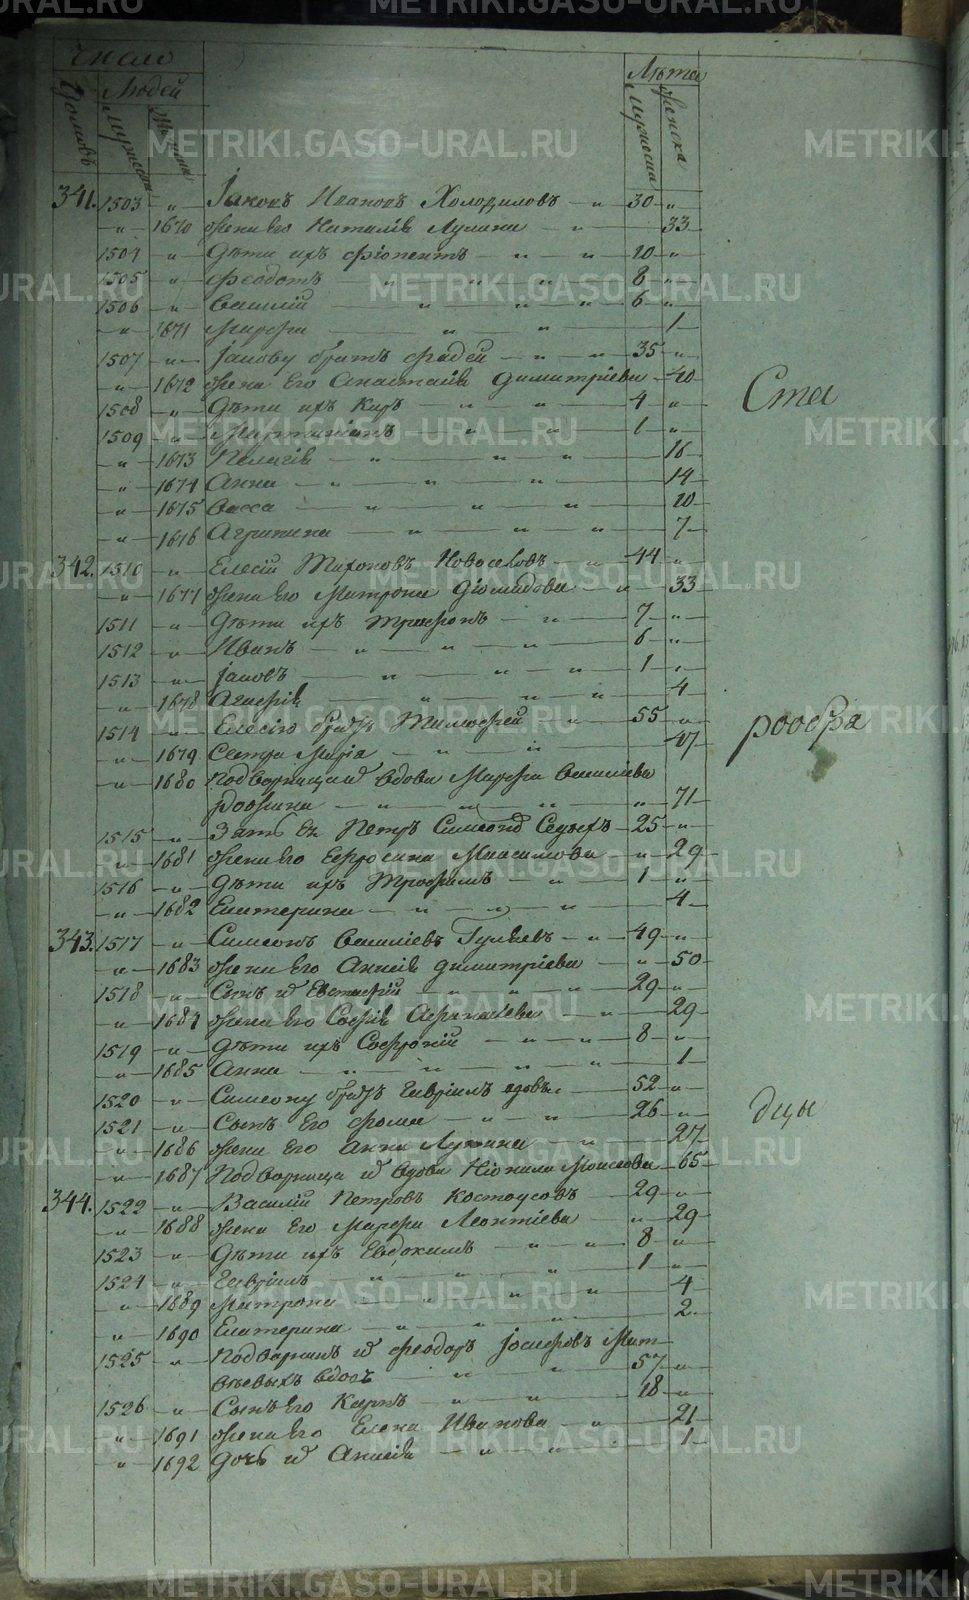 Число
Домовъ
Людей
Мужеска
Женска
Лѣта
Мужеска
Женска
341. 1503 " Іаковъ Ивановъ Холодиловъ " 30 "
" 1670 жена его Наталія Лукина " 33
1504 " Дѣти ихъ " " 10 "
1505 " Феодотъ " " " 8 "
1506 " Василій " " " 6 "
" 1671 Марфа " " 1
1507 " Іакову братъ Фадей " " 35 "
" 1672 жена его Анастасія Димитріева 40
1508 " Дѣти ихъ Киръ " " 4 "
1509 " Мартиніанъ " " 1 "
" 1673 Пелагія " " " 16
" 1674 Анна " " " 14
" 1675 Васса " " " 10
" 1676 Агрипина " " " 7
342. 1510 " Елесій Тихоновъ Новоселовъ " 44 "
" 1677 жена его Матрона Діомидова " 33
1511 " Дѣти ихъ Трифонъ " 7 "
1512 " Иванъ " " " " 6 "
1513 " Іаковъ " " " 1 "
" 1678 Агафія " " " 4
1514 " Елесію братъ Тимофей " 55 "
" 1679 Сестра Марія " " 47
" 1680 Подворница и вдова Марфа Василіева
" " " " 71
1515 " Зять ея Петръ Симеоновъ Седыхъ 25 "
" 1681 жена его Ефросина Максимова " 29
1516 " Дѣти ихъ Трофимъ " 1 "
" 1682 Екатерина " " " 4
343. 1517 " Симеонъ Василіевъ Гуляевъ " 49 "
" 1683 жена его Аксиія Димитріева " 50
1518 " Сынъ и Евстафій " " " 29 "
" 1684 жена его Софія Афанасіева " 29
1519 " Дѣти ихъ Софроній " " " 8 "
" 1685 Анна " " " " 1
1520 " Симеону братъ Гавріилъ вдовъ 52 "
1521 " Сынъ его Фома " " 26 "
" 1686 жена его Анна Лукина " " 27
" 1687 Подворница и вдова Неонила Моисеева 65
344. 1522 " Василій Петровъ Костоусовъ 29 "
" 1688 жена его Марфа Леонтіева " 29
1523 " Дѣти ихъ Евдокимъ " " 8 "
1524 " Гавріилъ " " " 1 "
" 1689 Матрона " " " 4
" 1690 Екатерина " " 2.
1525 " Подворникъ и Феодоръ Іосифовъ Мат-
вѣевыхъ вдовъ " " 57 "
1526 " Сынъ его Карпъ " " 18 "
" 1691 жена его Елена Иванова " 21
" 1692 Дочь и Аксиія " " 1
Ста
рообря
дцы
METRIKI.GASO-URAL.RU